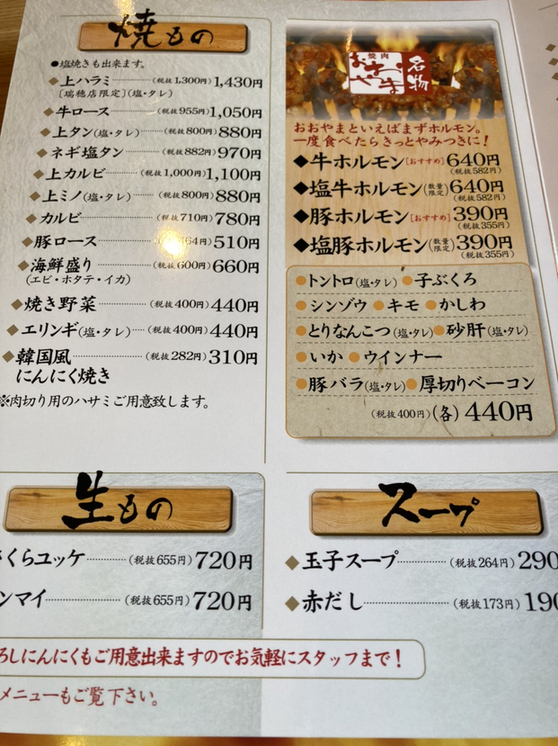 焼もの
●塩焼きも出来ます。
◆上ハラミ (税抜1,300円) 1,430円
[瑞穂店限定] (塩・タレ)
◆牛ロース (税抜955円) 1,050円
◆上タン (塩・タレ) (税抜800円) 880円
◆ネギ塩タン (税抜882円) 970円
◆上カルビ (税抜1,000円) 1,100円
◆上ミノ (塩・タレ) (税抜800円) 880円
◆カルビ (税抜710円) 780円
◆豚ロース 64円) 510円
◆海鮮盛り (税抜600円) 660円
(エビ・ホタテ・イカ)
◆焼き野菜 (税抜400円) 440円
◆エリンギ (塩・タレ) (税抜400円) 440円
◆韓国風 (税抜282円) 310円
にんにく焼き
※肉切り用のハサミご用意致します。
焼肉
名物
おおやまといえばまずホルモン。
一度食べたらきっとやみつきに!
◆牛ホルモン [おすすめ] 640円
(税抜582円)
◆塩牛ホルモン (数量限定) 640円
(税抜582円)
◆豚ホルモン [おすすめ] 390円
(税抜355円)
◆塩豚ホルモン (数量限定) 390円
(税抜355円)
●トントロ (塩・タレ) ●子ぶくろ
●シンゾウ ●キモ ●かしわ
●とりなんこつ (塩・タレ) ●砂肝 (塩・タレ)
●いか ●ウインナー
●豚バラ (塩・タレ) ●厚切りベーコン
(税抜400円) (各) 440円
生もの
くらユッケ (税抜655円) 720円
ンマイ (税抜655円) 720円
スープ
◆玉子スープ (税抜264円) 290
◆赤だし (税抜173円) 190
ろしにんにくもご用意出来ますのでお気軽にスタッフまで!
メニューもご覧下さい。